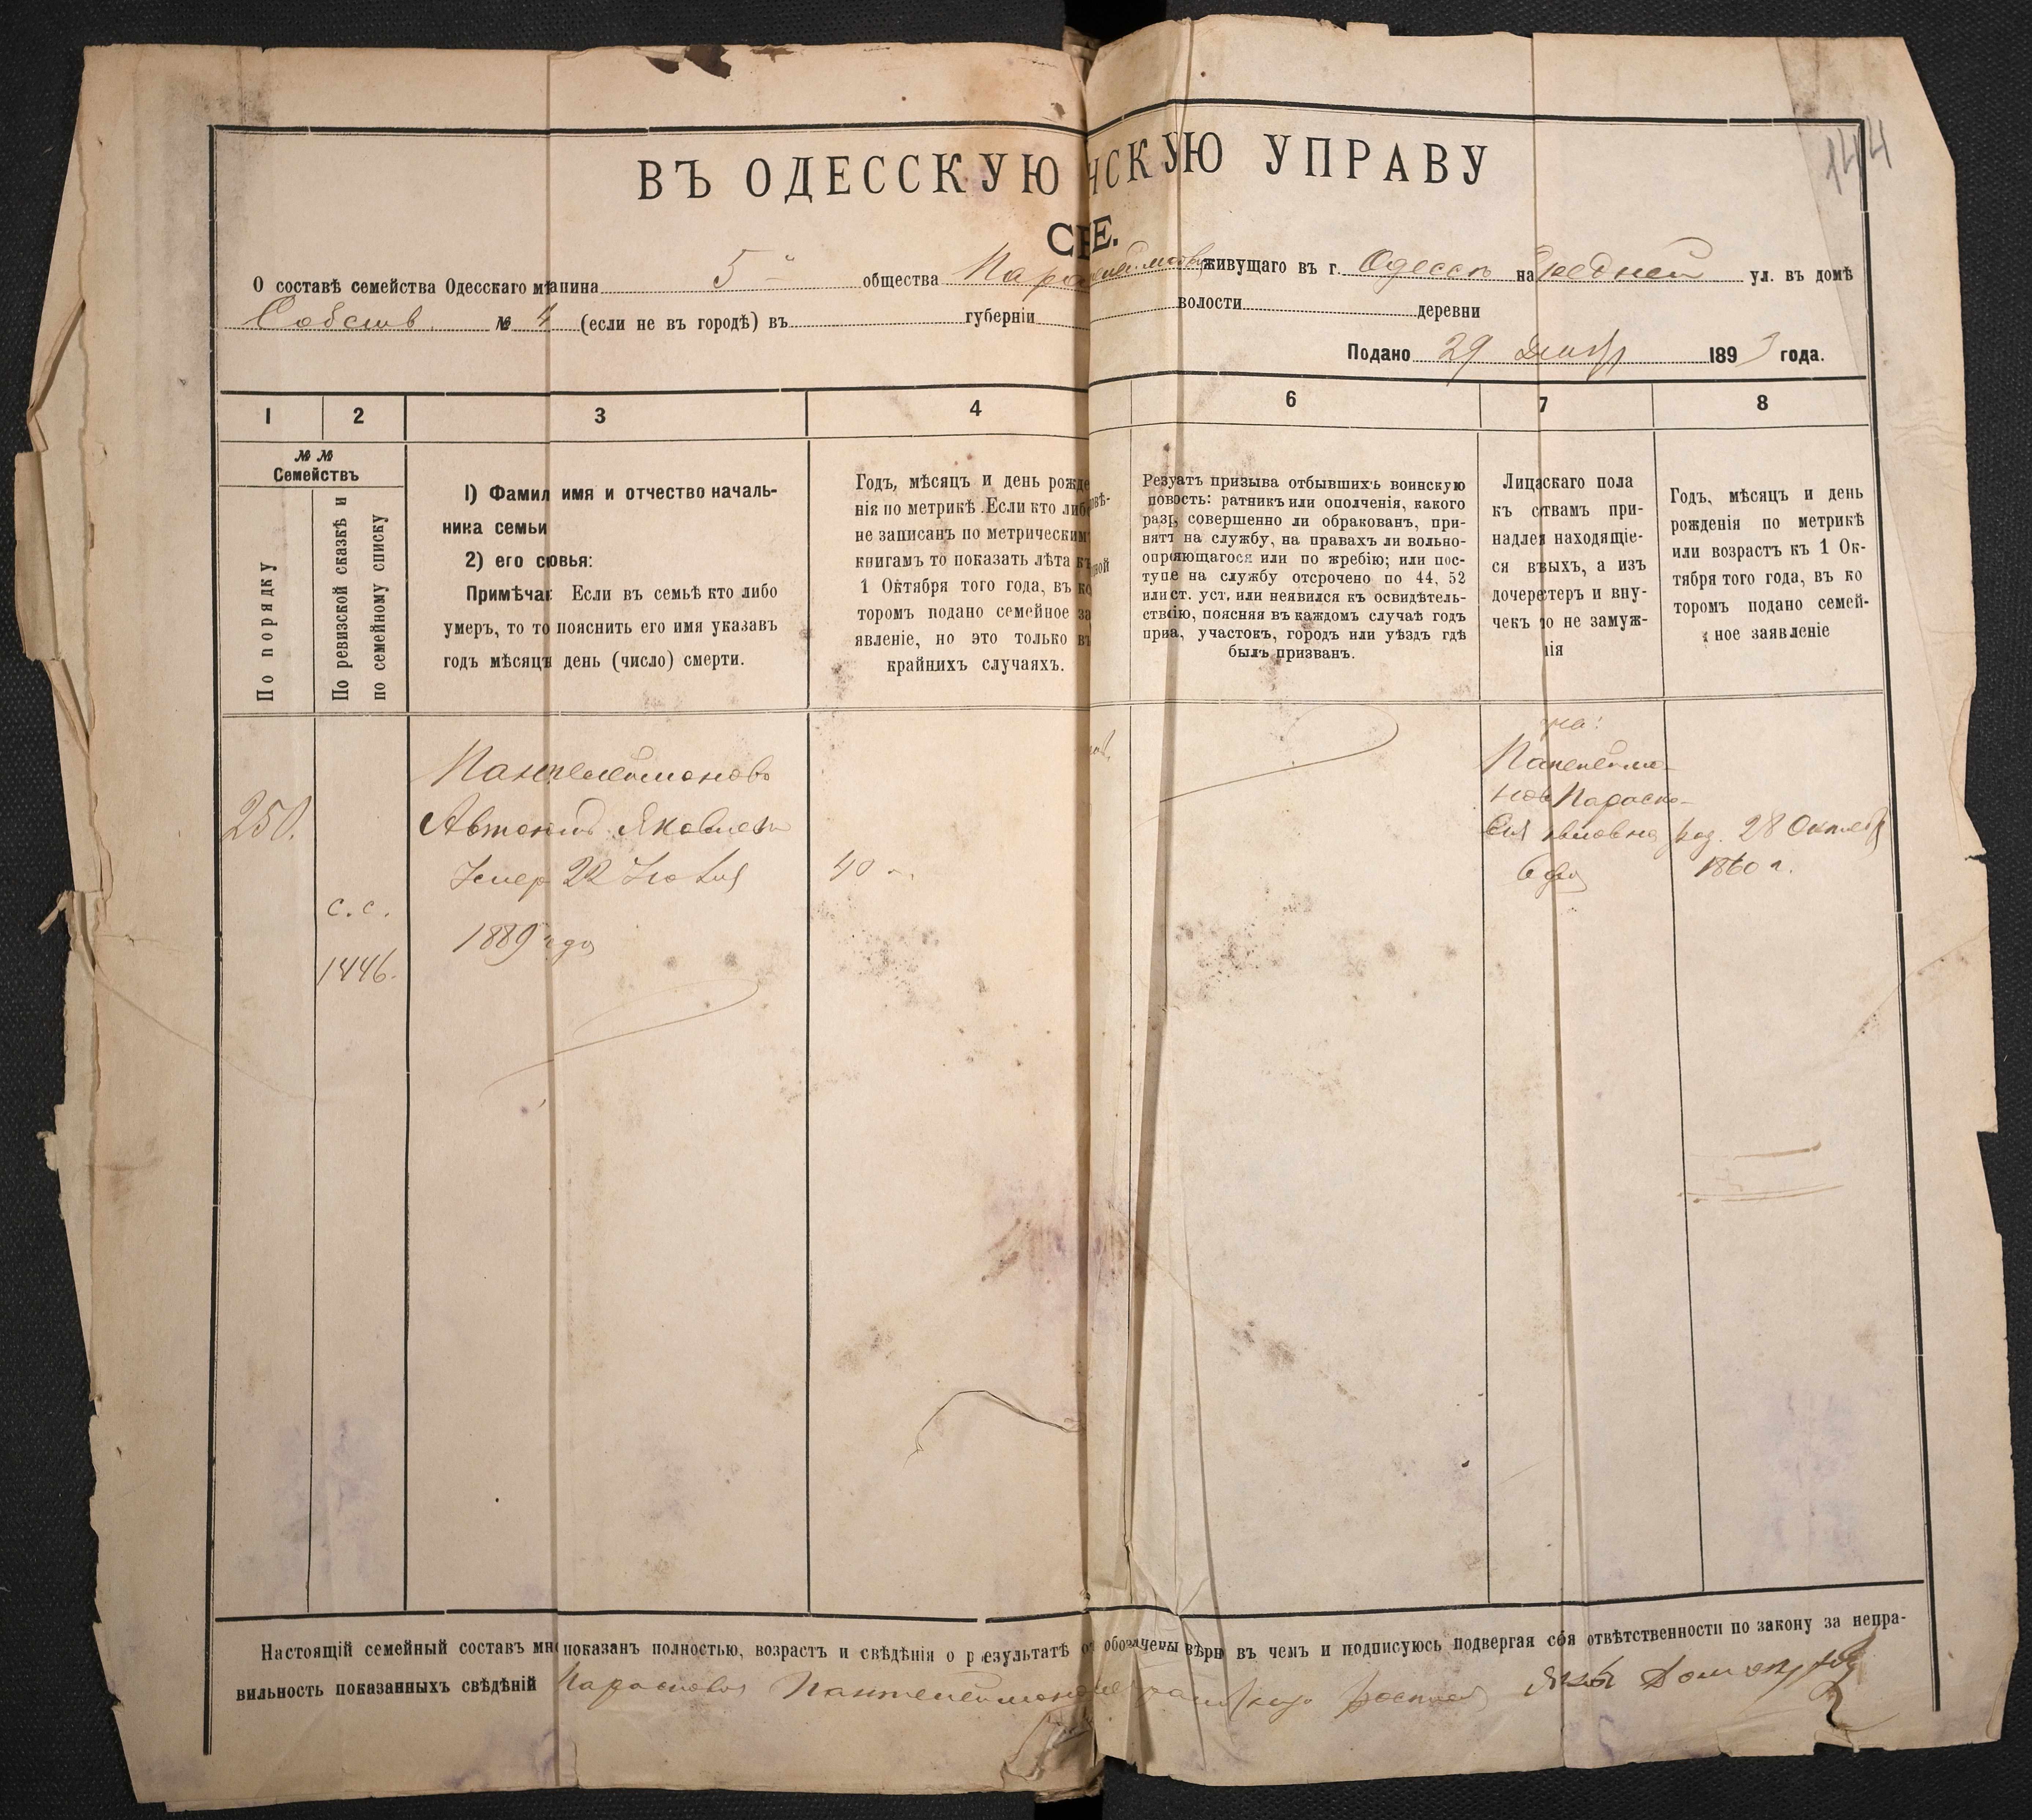 144
ВЪ ОДЕССКУЮ НСКУЮ УПРАВУ
СЕ.
О составѣ семейства Одесскаго мѣанина 5 общества живущаго въ г. Одессѣ на Средней ул. въ домѣ
Собств. № 4 (если не въ городѣ) въ губерніи волости деревни
Подано 29 1893 года.
1 2 3 4 6 7 8
№ № Семействъ
По порядку
По ревизской сказкѣ и по семейному списку
1) Фамил имя и отчество началь-
ника семьи
2) его совья:
Примѣчан Если въ семьѣ кто либо
умеръ, то то пояснить его имя указавъ
годъ мѣсяцъ день (число) смерти.
Годъ, мѣсяцъ и день рожде
нія по метрикѣ. Если кто либ
не записанъ по метрическим
книгамъ то показать лѣта к
1 Октября того года, въ ко
торомъ подано семейное за
явленіе, но это только въ
крайнихъ случаяхъ.
Резуатъ призыва отбывшихъ воинскую
повость: ратникъ или ополченія, какого
разр, совершенно ли обракованъ, при-
нятъ на службу, на правахъ ли вольно-
опряющагося или по жребію; или пос-
тупе на службу отсрочено по 44, 52
или ст. уст, или неявился къ освидѣтель-
ствію, поясняя въ каждомъ случаѣ годъ
прива, участокъ, городъ или уѣздъ гдѣ
былъ призванъ.
Лицаскаго пола
къ ствамъ при-
надлея находящіе-
ся въвыхъ, а изъ
дочерестеръ и вну-
чекъ то не замуж-
нія
Годъ, мѣсяцъ и день
рожденія по метрикѣ
или возрастъ къ 1 Ок-
тября того года, въ ко
торомъ подано семей-
ное заявленіе
250.
с. с.
1446.
Пантелеймоновъ
Автономъ Яковлевъ
Умер 22 Іюля
1889 года
40
на:
Пантелеймо-
нов Параско-
вдова
род. 28 Октября
1860 г.
Настоящій семейный составъ мно показанъ полностью, возрастъ и свѣдѣнія о результатѣ о обозначены вѣрн въ чемъ и подписуюсь подвергая себя отвѣтственности по закону за непра-
вильность показанныхъ свѣдѣній Парасковія Пантелеймонов